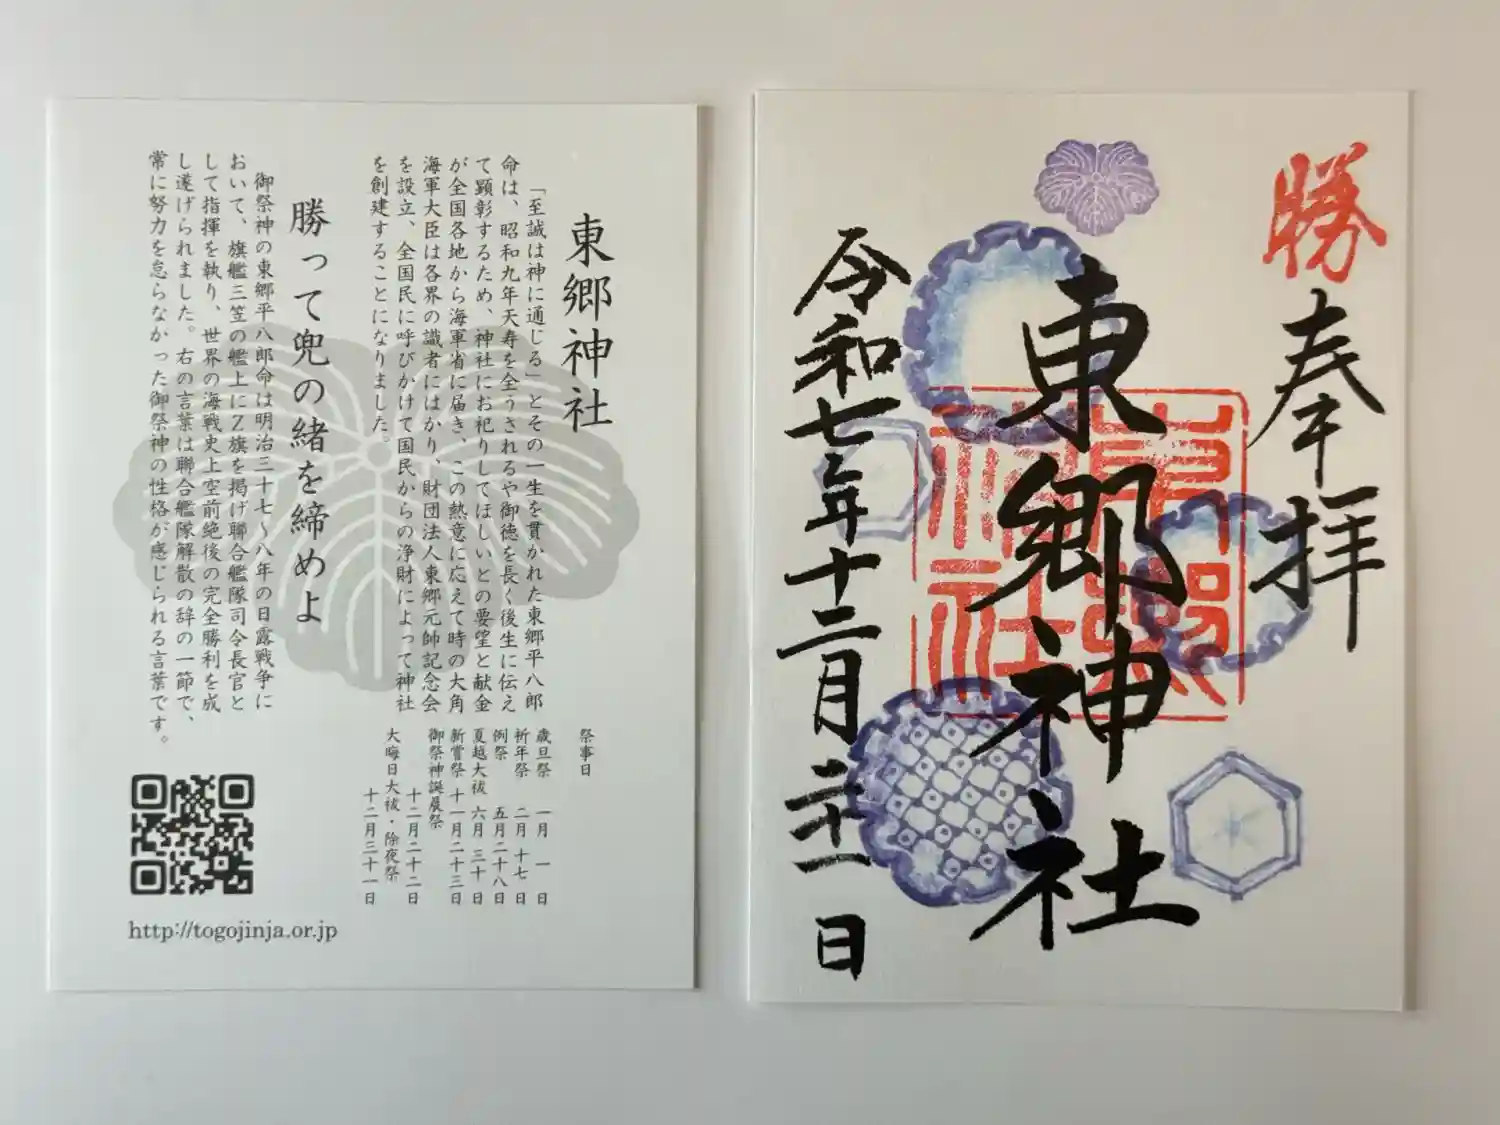 東郷神社
「至誠は神に通じる」とその一生を貫かれた東郷平八郎
命は、昭和九年天寿を全うされるや御徳を長く後生に伝え
て顕彰するため、神社にお祀りしてほしいとの要望と献金
が全国各地から海軍省に届き、この熱意に応えて時の大角
海軍大臣は各界の識者にはかり、財団法人東郷元帥記念会
を設立、全国民に呼びかけて国民からの浄財によって神社
を創建することになりました。
勝って兜の緒を締めよ
御祭神の東郷平八郎命は明治三十七～八年の日露戦争に
おいて、旗艦三笠の艦上にZ旗を掲げ聯合艦隊司令長官と
して指揮を執り、世界の海戦史上空前絶後の完全勝利を成
し遂げられました。右の言葉は聯合艦隊解散の辞の一節で、
常に努力を怠らなかった御祭神の性格が感じられる言葉です。
祭事日
歳旦祭 一月 一 日
祈年祭 二月 十七 日
例祭 五月二十八日
夏越大祓 六月 三十 日
新嘗祭 十一月二十三日
御祭神誕晨祭 十二月二十二日
大晦日大祓・除夜祭 十二月三十一日
http://togojinja.or.jp
勝
奉拝
東郷神社
東郷神社
令和七年十二月二十一日